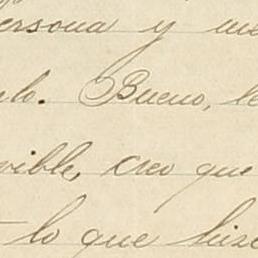 persona y me
lo. Bueno, le
ible, creo que
lo que hise